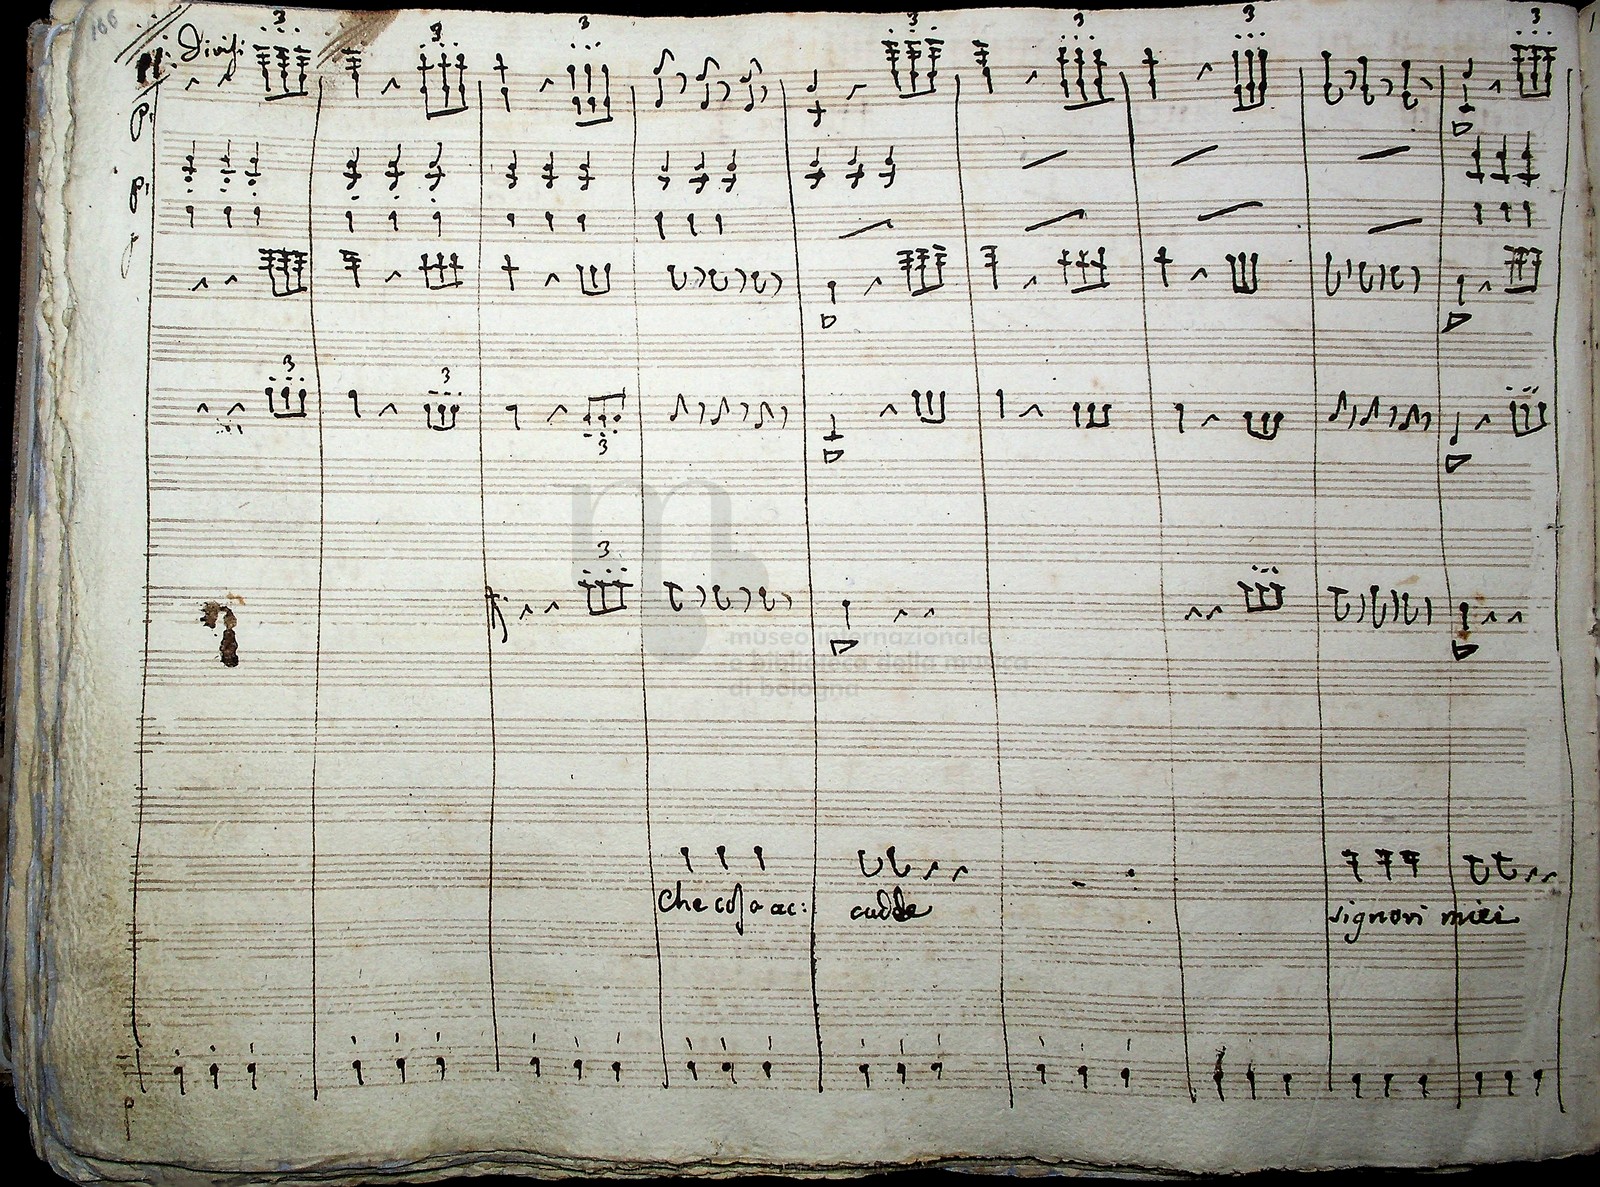 166
Divisi
3 3 3 3 3 3 3
P:
P:
3 3
3
3
museo internazionale
e biblioteca della musica
di bologna
Che cosa ac: cadde signori miei